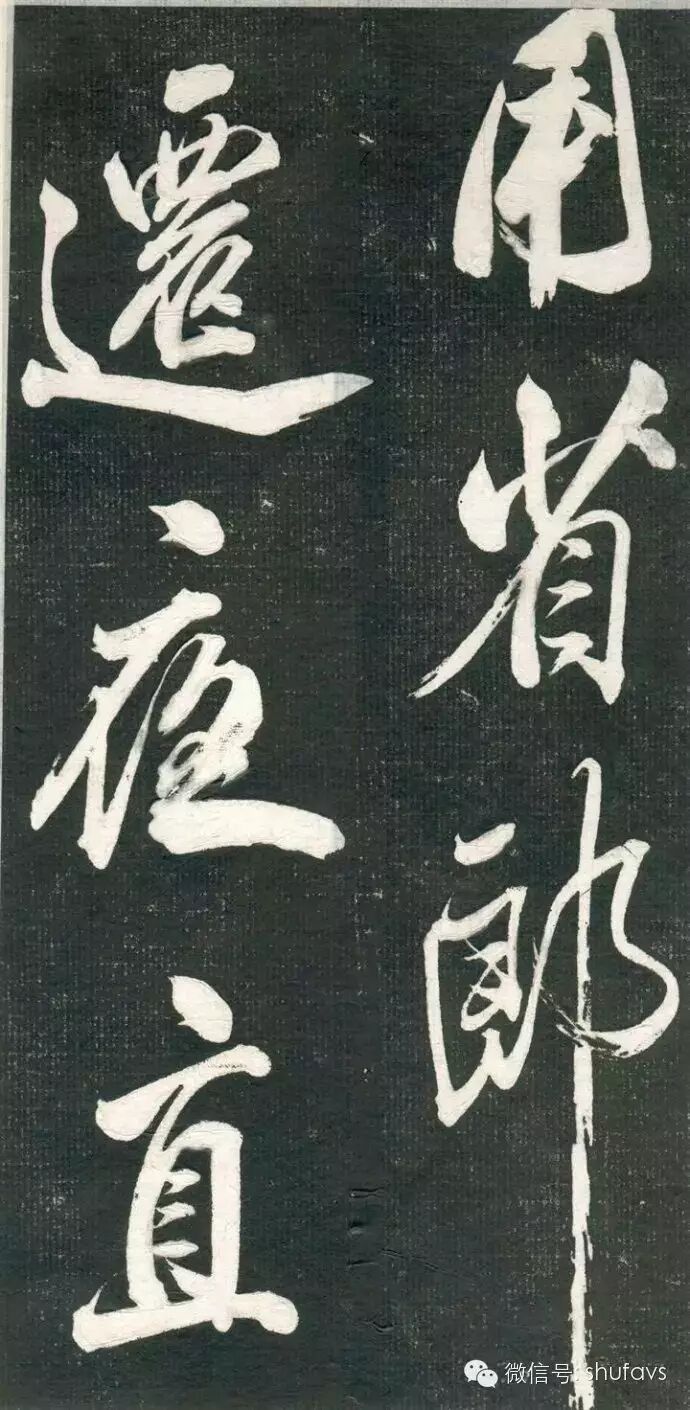 用省郎
遷夜直
微信号: shufavs